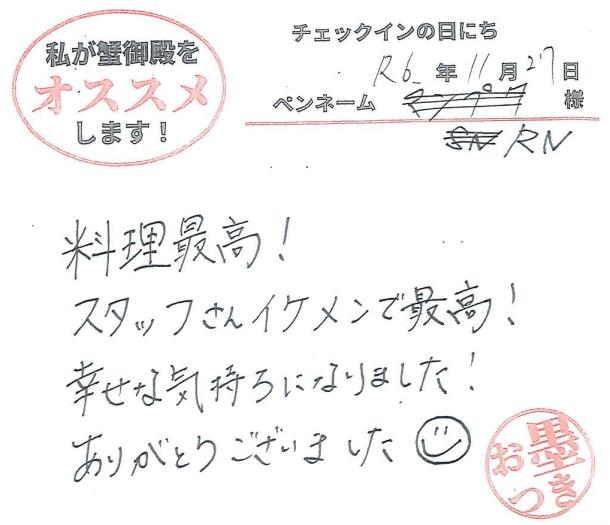 私が蟹御殿を
オススメ
します！
チェックインの日にち
R6年11月27日
ペンネーム 様
RN
料理最高！
スタッフさんイケメンで最高！
幸せな気持ちになりました！
ありがとうございました
お墨つき